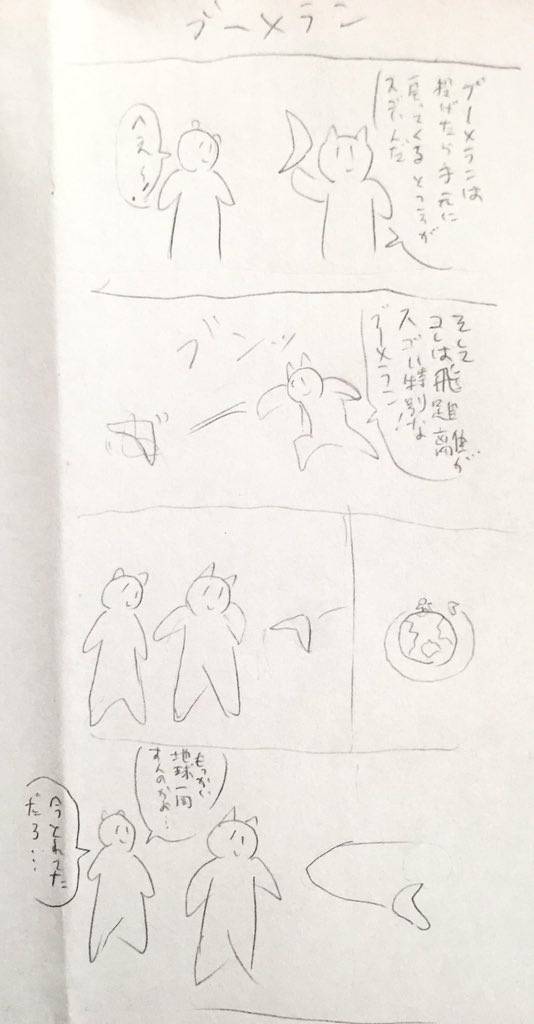 ブーメラン
ブーメランは
投げたら手元に
戻ってくるところが
スゴいんだ
へえ〜!
そして
コレは飛距離が
スゴい特別な
ブーメラン!
ブンッ
もっかい
地球一周
すんのかよ…
今とれてた
だろ……